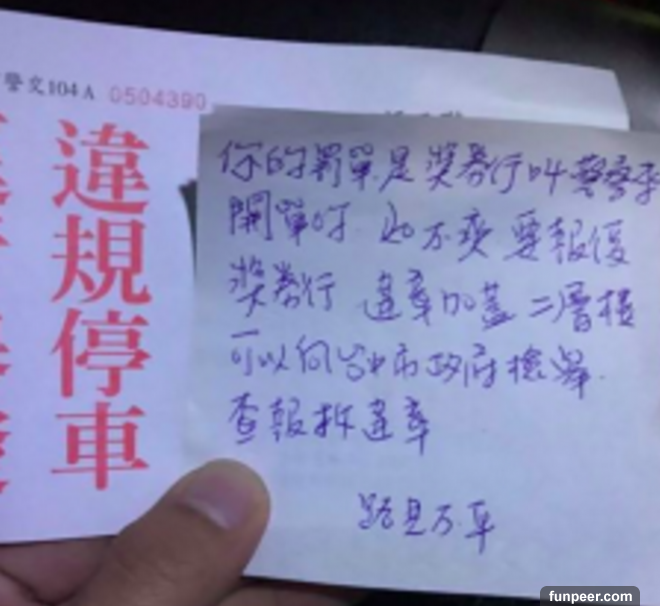 警交104A 0504390
違規停車
你的罰單是獎券行叫警察來
開單的 心不爽要報復
獎券行 違章加蓋二層樓
可以向台中市政府檢舉.
查報拆違章
路見不平
funpeer.com